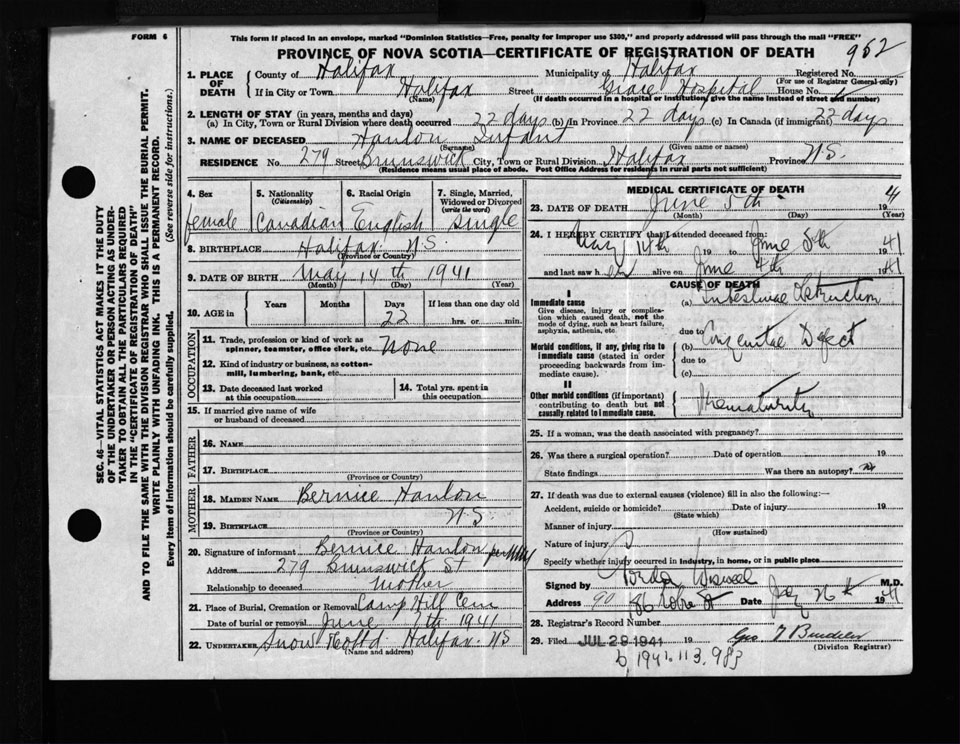 FORM 6
This form if placed in an envelope, marked "Dominion Statistics—Free, penalty for improper use $300," and properly addressed will pass through the mail "FREE"
PROVINCE OF NOVA SCOTIA—CERTIFICATE OF REGISTRATION OF DEATH
952
1. PLACE OF DEATH
County of Halifax Municipality of Halifax Registered No.
(For use of Registrar General only)
If in City or Town Halifax Street Grace Hospital House No.
(Name) (If death occurred in a hospital or institution, give the name instead of street and number)
2. LENGTH OF STAY (in years, months and days)
(a) In City, Town or Rural Division where death occurred 22 days (b) In Province 22 days (c) In Canada (if immigrant) 22 days
3. NAME OF DECEASED Hanlon Infant
(Surname) (Given name or names)
RESIDENCE No. 279 Street Brunswick City, Town or Rural Division Halifax Province N.S.
(Residence means usual place of abode. Post Office Address for residents in rural parts not sufficient)
4. Sex female
5. Nationality (Citizenship) Canadian
6. Racial Origin English
7. Single, Married, Widowed or Divorced (write the word) Single
8. BIRTHPLACE Halifax N.S.
(Province or Country)
9. DATE OF BIRTH May 14th 1941
(Month) (Day) (Year)
10. AGE in Years Months Days 22 If less than one day old hrs. or min.
OCCUPATION
11. Trade, profession or kind of work as spinner, teamster, office clerk, etc. None
12. Kind of industry or business, as cotton-mill, lumbering, bank, etc.
13. Date deceased last worked at this occupation
14. Total yrs. spent in this occupation
15. If married give name of wife or husband of deceased
FATHER
16. NAME
17. BIRTHPLACE
(Province or Country)
MOTHER
18. MAIDEN NAME Bernice Hanlon
19. BIRTHPLACE N.S.
(Province or Country)
20. Signature of informant Bernice Hanlon per
Address 279 Brunswick St
Relationship to deceased Mother
21. Place of Burial, Cremation or Removal Camp Hill Cem
Date of burial or removal June 6th 1941
22. UNDERTAKER Snow & Co Ltd Halifax N.S
(Name and address)
MEDICAL CERTIFICATE OF DEATH
23. DATE OF DEATH June 5th 1941
(Month) (Day) (Year)
24. I HEREBY CERTIFY that I attended deceased from:
May 14th 19 to June 5th 1941
and last saw her alive on June 4th 1941
CAUSE OF DEATH
I
Immediate cause
Give disease, injury or complication which caused death, not the mode of dying, such as heart failure, asphyxia, asthenia, etc.
(a) Intestinal Obstruction
due to
Morbid conditions, if any, giving rise to immediate cause (stated in order proceeding backwards from immediate cause).
(b) Congenital Defect
due to
(c)
II
Other morbid conditions (if important) contributing to death but not causally related to immediate cause.
Prematurity
25. If a woman, was the death associated with pregnancy?
26. Was there a surgical operation? Date of operation 19
State findings Was there an autopsy? no
27. If death was due to external causes (violence) fill in also the following:—
Accident, suicide or homicide? Date of injury 19
(State which)
Manner of injury
(How sustained)
Nature of injury
Specify whether injury occurred in Industry, in home, or in public place
Signed by M.D.
Address Date 1941
28. Registrar's Record Number
29. Filed JUL 28 1941 19 Geo
(Division Registrar)
SEC. 46—VITAL STATISTICS ACT MAKES IT THE DUTY
OF THE UNDERTAKER OR PERSON ACTING AS UNDERTAKER
TO OBTAIN ALL THE PARTICULARS REQUIRED
IN THE "CERTIFICATE OF REGISTRATION OF DEATH"
AND TO FILE THE SAME WITH THE DIVISION REGISTRAR WHO SHALL ISSUE THE BURIAL PERMIT.
WRITE PLAINLY WITH UNFADING INK. THIS IS A PERMANENT RECORD.
Every item of information should be carefully supplied. (See reverse side for instructions.)